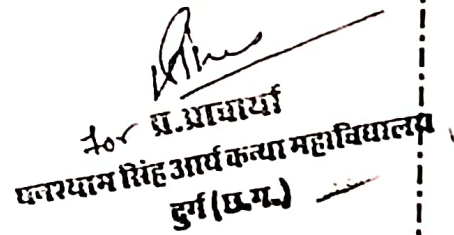 for प्र.प्राचार्या
घनश्याम सिंह आर्य कन्या महाविद्यालय
दुर्ग (छ.ग.)